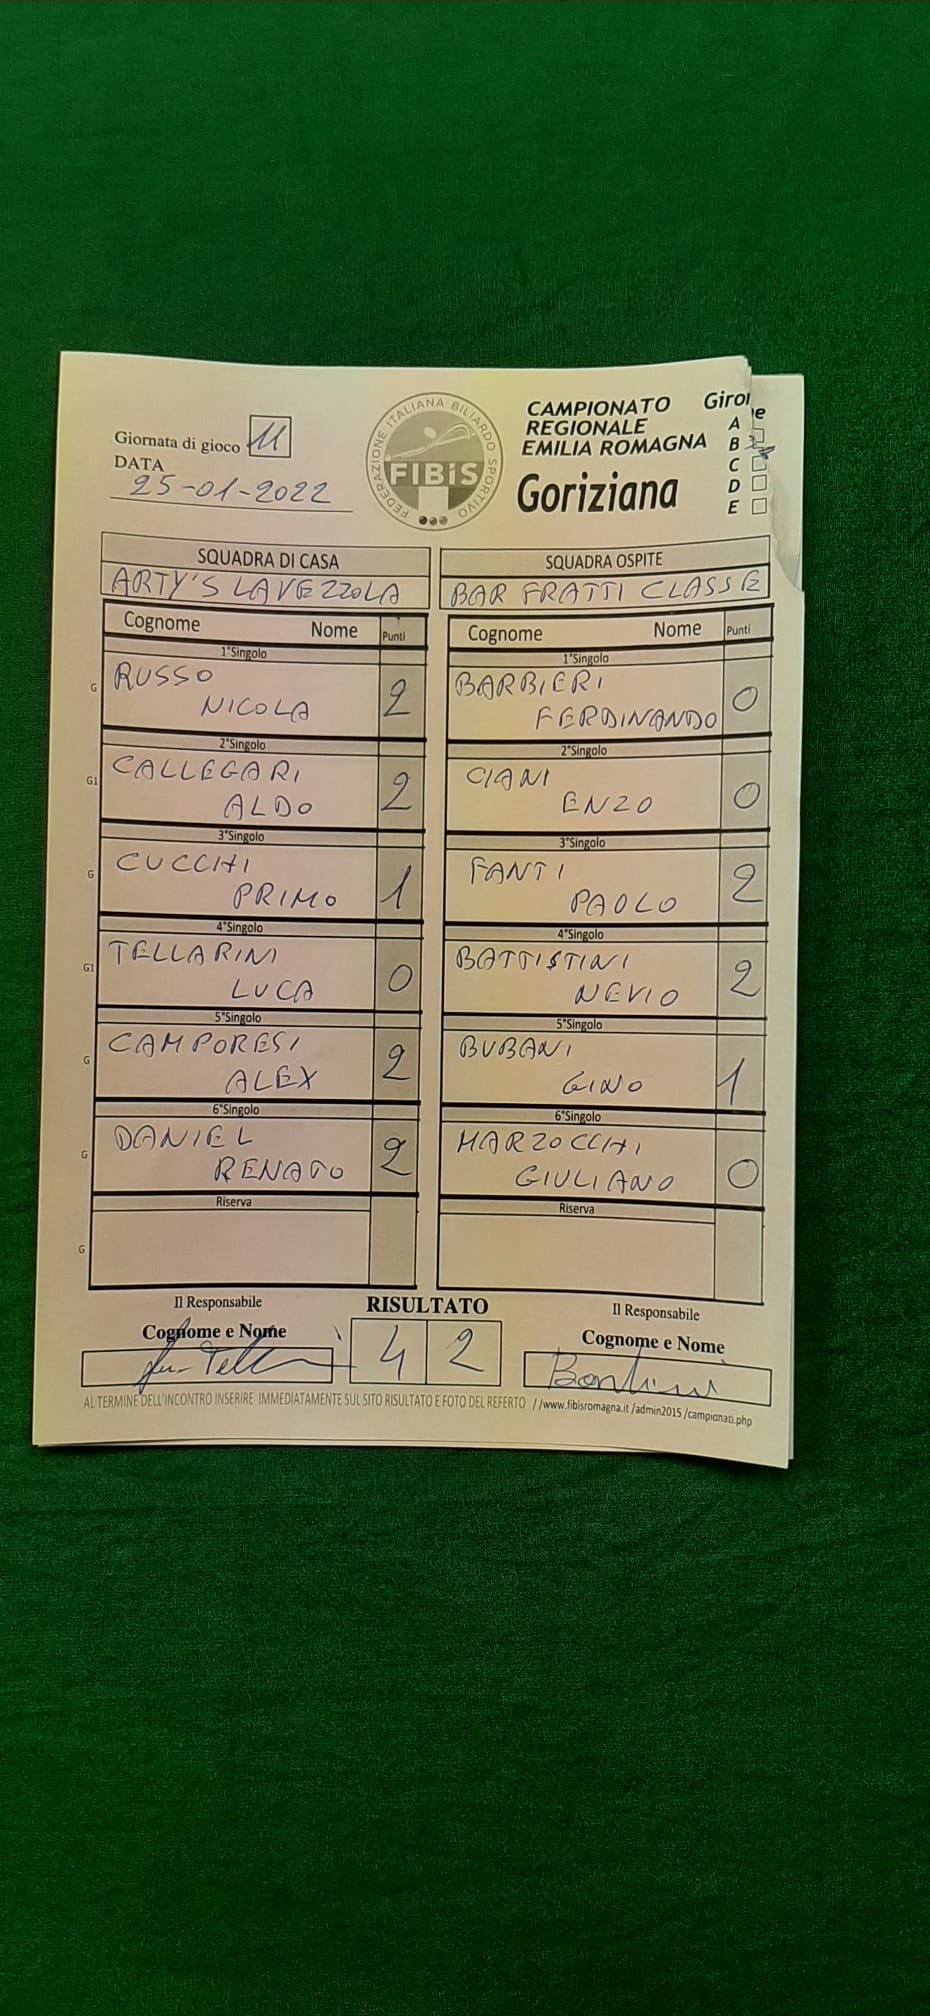 Giornata di gioco 11
DATA
25-01-2022
FEDERAZIONE ITALIANA BILIARDO SPORTIVO
FIBiS
CAMPIONATO
REGIONALE
EMILIA ROMAGNA
Goriziana
A
B
C
D
E
SQUADRA DI CASA
ARTY'S LAVEZZOLA
SQUADRA OSPITE
BAR FRATTI CLASSE
Cognome Nome Punti
Cognome Nome Punti
1°Singolo
G RUSSO
NICOLA 2
1°Singolo
BARBIERI
FERDINANDO 0
2°Singolo
G1 CALLEGARI
ALDO 2
2°Singolo
CIANI
ENZO 0
3°Singolo
G CUCCHI
PRIMO 1
3°Singolo
FANTI
PAOLO 2
4°Singolo
G1 TELLARINI
LUCA 0
4°Singolo
BATTISTINI
NEVIO 2
5°Singolo
G CAMPORESI
ALEX 2
5°Singolo
BUBANI
GINO 1
6°Singolo
G DANIEL
RENATO 2
6°Singolo
MARZOCCHI
GIULIANO 0
Riserva
G
Riserva
Il Responsabile
Cognome e Nome
RISULTATO
4 2
Il Responsabile
Cognome e Nome
AL TERMINE DELL'INCONTRO INSERIRE IMMEDIATAMENTE SUL SITO RISULTATO E FOTO DEL REFERTO //www.fibisromagna.it /admin2015 /campionati.php